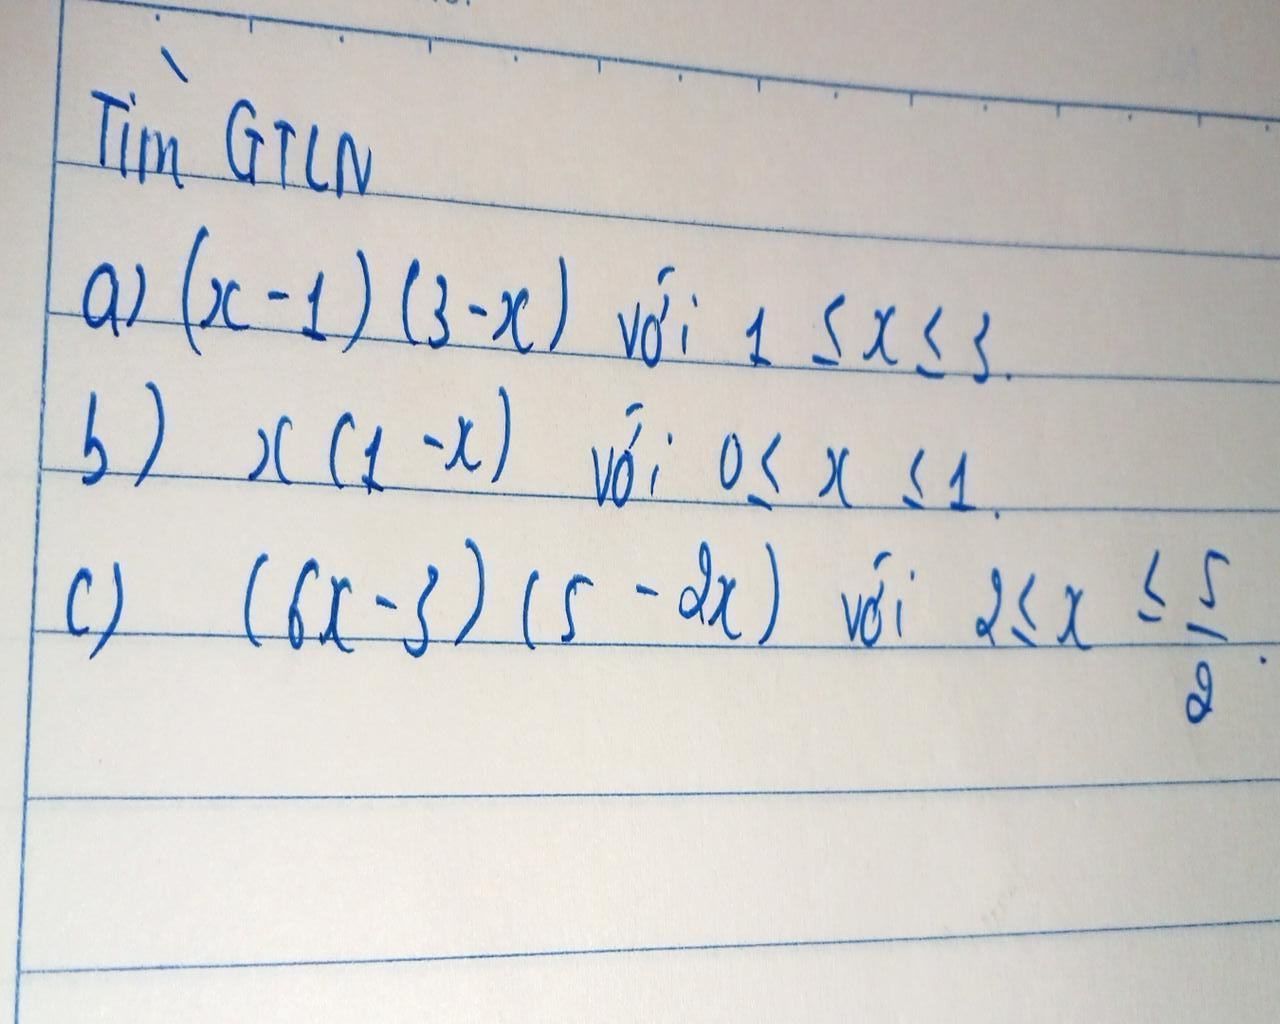 Tìm GTLN
a) (x - 1) (3 - x) với 1 ≤ x ≤ 3.
b) x (1 - x) với 0 ≤ x ≤ 1.
c) (6x - 3) (5 - 2x) với 2 ≤ x ≤ 5/2.